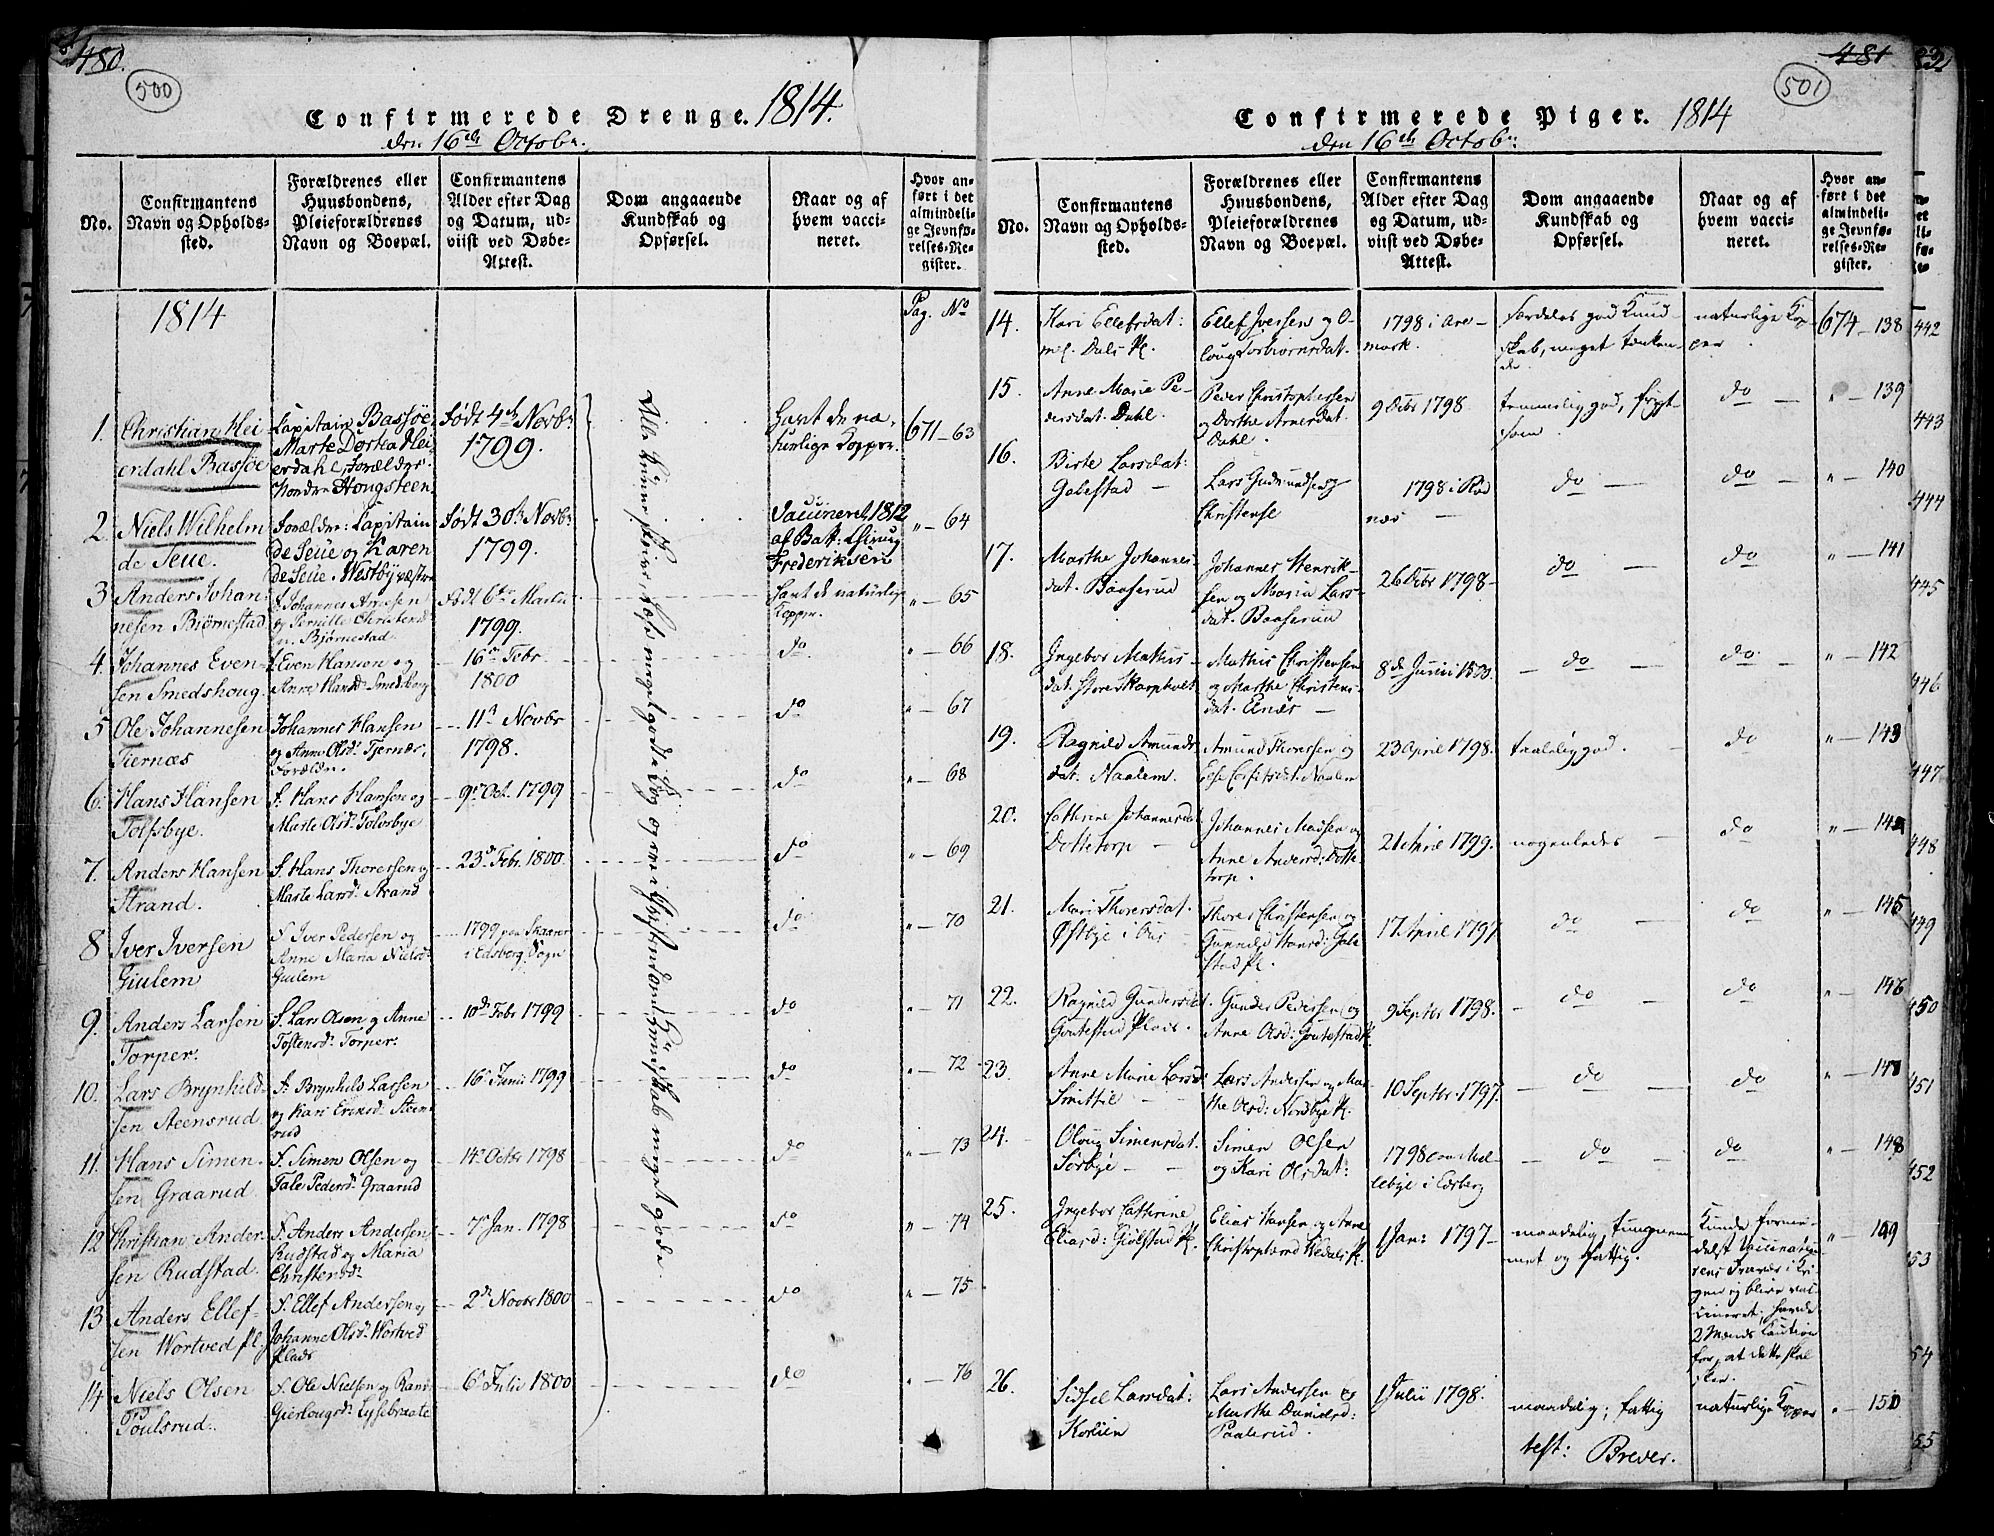 480.
500
Confirmerede Drenge. 1814.
den 16de Octobr.
No.
Confirmantens
Navn og Opholds-
sted.
Forældrenes eller
Huusbondens,
Pleieforældrenes
Navn og Boepæl.
Confirmantens
Alder efter Dag
og Datum, ud-
viist ved Døbe-
Attest.
Dom angaaende
Kundskab og
Opførsel.
Naar og af
hvem vacci-
neret.
Hvor an-
ført i det
almindeli-
ge Jevnfø-
relses-Re-
gister.
1814
Pag. No
1.
Christian Hei-
erdahl Bassøe
Capitain Bassøe
Marte Dortea Hei-
erdahl, Forældre.
Hougsteen.
Født 4de Novbr
1799.
havt de na-
turlige Kopper.
671-63
2.
Niels Wilhelm
de Seue.
Forældre: Capitain
de Seue og Karen
de Seue. Westby
Født 30te Novbr
1799.
Vaccineret 1812
af Bat: Chirurg
Frederiksen
" - 64
3
Anders Johan-
nesen Bjørnestad
F. Johannes
og Pernille Christens-
Bjørnestad.
Født 6te Martii
1799.
havt de naturlige
Kopper.
" - 65
4.
Johannes Even-
sen Smedshoug.
F. Even Hansen og
Anne Hansd: Smedshoug
16de Febr
1800
do.
" - 66
5
Ole Johannesen
Tiernæs
Johannes Hansen
og Anne Olsd: Tjernæs,
Forældre.
11te Novbr
1798.
do
" - 67
6.
Hans Hansen
Tolfsbye.
F. Hans Hansen og
Marte Olsd: Tolvsbye
9de Oct. 1799
do
" - 68
7.
Anders Hansen
Strand.
F. Hans Thoresen og
Marte Larsd: Strand
23de Febr. 1800.
do
" - 69
8
Iver Iversen
Giulem
F. Iver Pedersen og
Anne Maria Nielsd:
Giulem
1799 paa Skaarer
i Edsberg Sogn
do
" - 70
9.
Anders Larsen
Torper.
F. Lars Olsen og Anne
Tostensd: Torper.
10de Febr 1799
do
" - 71
10.
Lars Brynhild-
sen Steensrud
F. Brynhild Larsen
og Kari Ericsd: Steens-
rud
16de Junii 1799
do
" - 72
11.
Hans Simen-
sen Graarud
F. Simen Olsen og
Tale Pedersd: Graarud
14de Octbr 1798
do
" - 73
12
Christian Ander-
sen Rudstad.
F. Anders Andersen
Rudstad og Maria
Christensd:
7de Jan. 1798
do
" - 74
13
Anders Ellef-
sen Wortved pl.
F. Ellef Andersen og
Johanne Olsd: Wortved
Plads
2de Novbr 1800
do
" - 75
14
Niels Olsen
Poulsrud.
F. Ole Nielsen og
6te Julii 1800
do
" - 76
481
501
Confirmerede Piger. 1814
den 16de Octobr:
No.
Confirmantens
Navn og Opholds-
sted.
Forældrenes eller
Huusbondens,
Pleieforældrenes
Navn og Boepæl.
Confirmantens
Alder efter Dag
og Datum, ud-
viist ved Døbe-
Attest.
Dom angaaende
Kundskab og
Opførsel.
Naar og af
hvem vacci-
neret.
Hvor an-
ført i det
almindeli-
ge Jevnfø-
relses-Re-
gister.
14.
Kari Ellefsdat:
Dals Pl.
Ellef Iversen og O-
loug Torbiørnsdat.
1798 i Are-
mark.
særdeles god Kund-
skab, meget tænken-
de.
naturlige Kop-
per
674 - 138
15
Anne Marie Pe-
dersdat. Dahl.
Peder Christophersen
og Dorthe Arnesdat.
Dahl.
9 Octbr 1798
temmelig god, fryt-
som.
do
" - 139
16.
Birte Larsdat:
Gabestad
Lars Gudmundsen og
Christense
1798 i Rød
næs
do
do
" - 140
17.
Marthe Johannes-
dat. Baaserud
Johannes Henrik-
sen og Maria Lars-
dat. Baaserud
26 Octbr 1798
do
do
" - 141
18.
Ingebor Mathis-
dat. Store Skarpholt
Mathis Christensen
og Marthe Christens-
dat.
8de Junii 1800.
do
do
" - 142
19.
Ragnild Amunds-
dat. Naalem.
Amund Thoresen og
Naalem
23 April 1798.
taalelig god.
do
" - 143
20.
Cathrine Johannesdat.
Dottetorp
Johannes Madsen og
Anne Andersd: Dotte-
torp.
21 April 1799.
nogenledes
do
" - 144
21.
Mari Thoresdat.
Østbye i Aas
Thores Christensen og
Gunnild Hansd:
stad Pl.
17 April 1797
do
do
" - 145
22.
Ragnild Gundersdat.
Goutestad Plads.
Gunder Pedersen og
Anne Olsd: Goutestad Pl.
9 Septbr 1798.
do
do
" - 146
23.
Anne Marie Larsd:
Smittil
Lars Andersen og Mar-
the Olsd: Nordbye Pl.
10 Septbr. 1797.
do
do
" - 147
24.
Oloug Simensdat.
Sørbye
Simen Olsen
og Kari Olsdat:
1798
lebye i Edsberg
do
do
" - 148
25.
Ingebor Cathrine
Eliasd: Giølstad Pl.
Elias Hansen og Anne
1 Jan: 1797
maadelig, tungnem-
met og fattig.
" - 149
26.
Sidsel Larsdat:
Korlien
Lars Andersen og
Marthe Danielsd:
Paalerud.
1 Julii 1798.
maadelig; fattig
naturlige Kopper
" - 150
test: Breder.
442
443
444
445
446
447
448
449
450
451
452
53
54
55